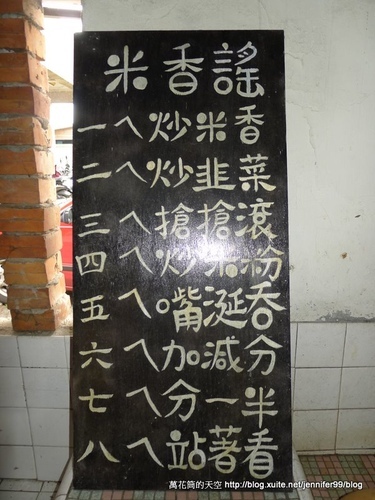 米香謠
一ㄟ炒米香
二ㄟ炒韭菜
三ㄟ搶搶滾
四ㄟ炒米粉
五ㄟ嘴涎吞
六ㄟ加減分
七ㄟ分一半
八ㄟ站著看
萬花筒的天空 http://blog.xuite.net/jennifer99/blog